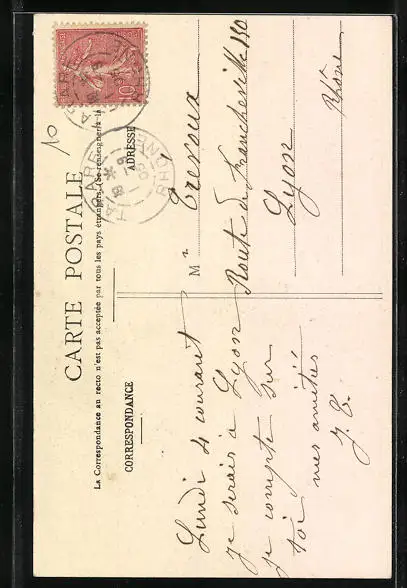 CARTE POSTALE
La Correspondance au recto n'est pas acceptée par tous les pays étrangers. (Se renseigner à la
CORRESPONDANCE
ADRESSE
Lundi 4 courant
je serais à Lyon
je compte sur
toi mes amitiés
J. E.
10
TARARE
RHÔNE
10
M r Trevoux
Route de Francheville 130
Lyon
Rhône